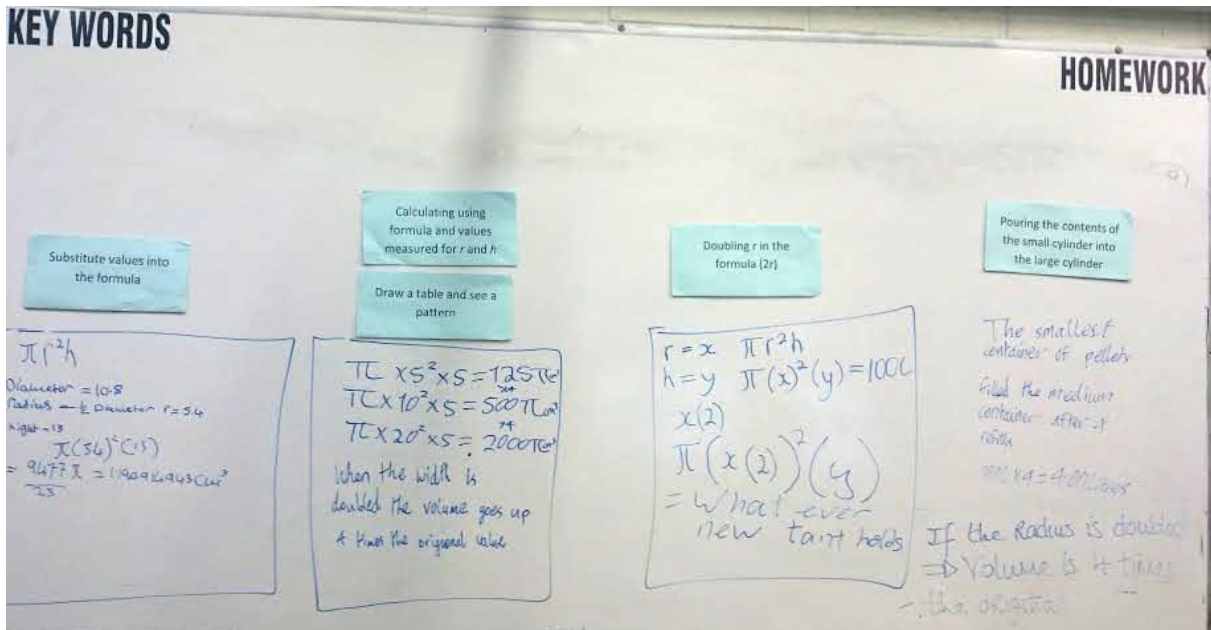 KEY WORDS
HOMEWORK
Substitute values into
the formula
πr²h
Diameter = 10.8
Radius = ½ Diameter r = 5.4
= 9477π
25
Calculating using
formula and values
measured for r and h
Draw a table and see a
pattern
π × 5² × 5 = 125π
×4
π × 10² × 5 = 500π cm³
×4
π × 20² × 5 = 2000π
When the width is
doubled the volume goes up
4 times the origional value
Doubling r in the
formula (2r)
r = x πr²h
h = y π(x)²(y) = 100
x(2)
π(x(2))²(y)
= What ever
new holds
Pouring the contents of
the small cylinder into
the large cylinder
The smallest
container of pellets
filled the medium
container after 4
If the Radius is doubled
⇒ Volume is 4 times
the